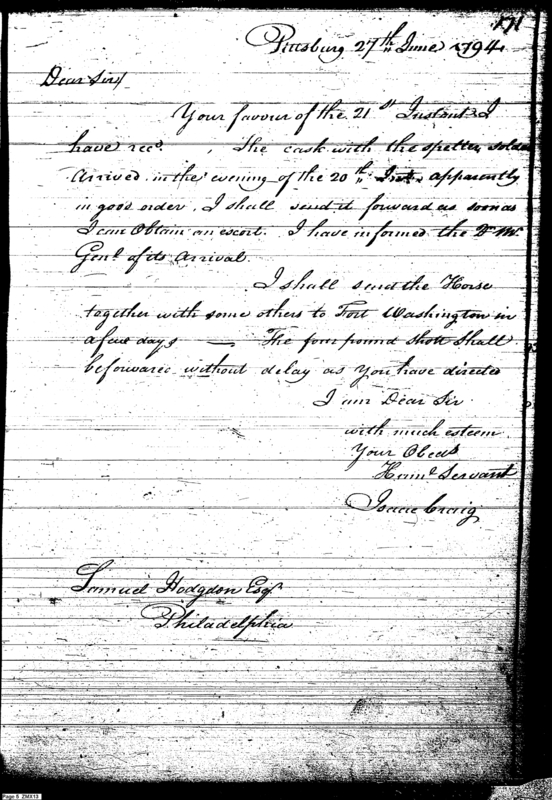 171
Pittsburg 27th June 1794
Dear Sir
Your favour of the 21st Instant I
have recd. , The cask with the spelter solder
Arrived in the evening of the 20th Inst. apparently
in good order, I shall send it forward as soon as
I can Obtain an escort. I have informed the Qr Mr
Genl of its Arrival.
I shall send the Horse
together with some others to Fort Washington in
a few days — The four pound Shott Shall
be forwared without delay as You have directed
I am Dear Sir
with much esteem
Your Obedt
Hum'l Servant
Isaac Craig
Samuel Hodgdon Esqr
Philadelphia
Page 5 ZMX13